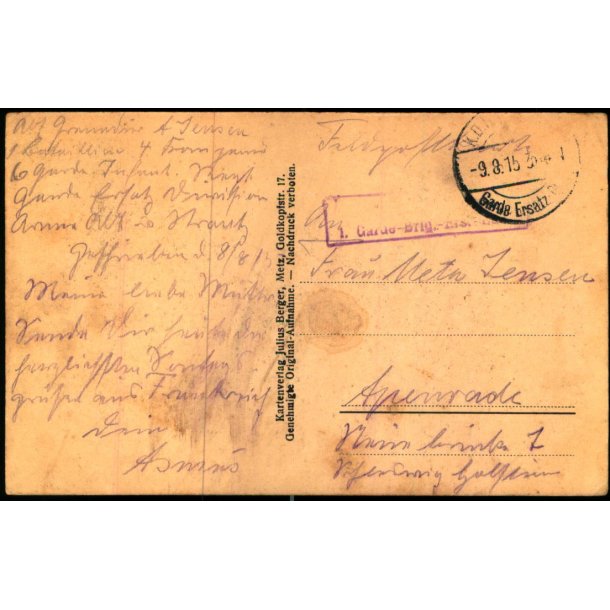 Abs Grenadier A Jensen
1 Bataillion 4 Kompanie
6 Garde Infant. Regt
Garde Ersatz Division
Armee Abt v Strantz
Geschrieben d 8/8/15
Meine liebe Mutter
Sende Dir heute die
herzlichsten Sonntags
grüße aus Frankreich
Dein
Asmus
Kartenverlag Julius Berger, Metz, Goldkopfstr. 17.
Genehmigte Original-Aufnahme. — Nachdruck verboten.
Feldpostkarte
K.D.
-9.8.15
Garde Ersatz
1. Garde-Brig.-Ers.
An
Frau Meta Jensen
Apenrade
Neue brücke 7
Schleswig Holstein